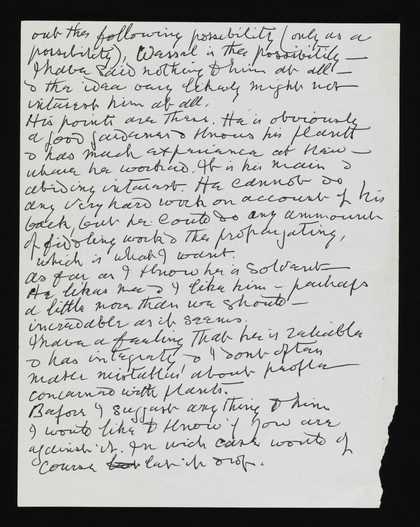 out the following possibility (only as a
possibility), Wassal is the possibility —
I have said nothing to him at all —
& the idea very likely might not
interest him at all.
His points are these. He is obviously
a good gardener & knows his plants
& has much experience at Kew —
where he worked. It is his main &
abiding interest. He cannot do
any very hard work on account of his
back, but he could do any ammount
of fiddling work & the propagating,
which is what I want.
as far as I know he is solvent
He likes me & I like him — perhaps
a little more than we should —
incredable as it seems.
I have a feeling that he is reliable
& has integraty & I dont often
make mistakes about people
concerned with plants.
Before I suggest anything to him
I would like to know if you are
against it. In wich case would of
course let it drop.